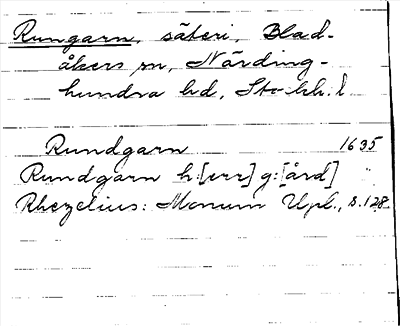 Rungarn, säteri, Blad-
åkers sn, Närding-
hundra hd, Sto-khh. l.
Rundgarn 1635
Rundgarn h:[err] g:[ård] "
Rhezelius: Monum Upl., s. 128.